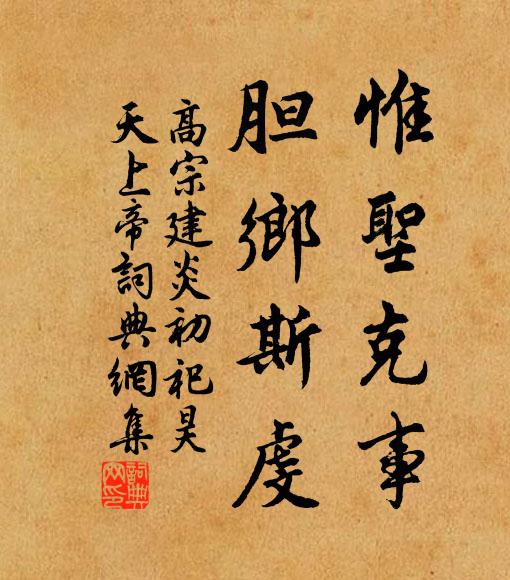 惟聖克事
胆鄉斯虔
高宗建炎初祀昊
天上帝詞典網集
詞典
网印